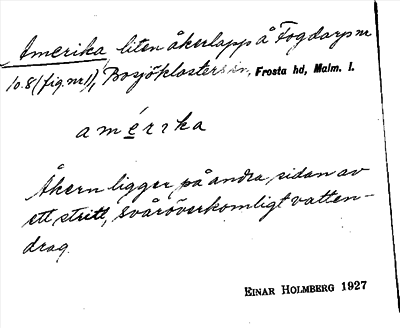 Amerika, liten åkerlapp å Fogdarp nr
10.8 (fig. nr 1), Bosjöklosters sn, Frosta hd, Malm. l.
amérıka
Åkern ligger på andra sidan av
ett, stritt, svåröverkomligt vatten-
drag.
EINAR HOLMBERG 1927